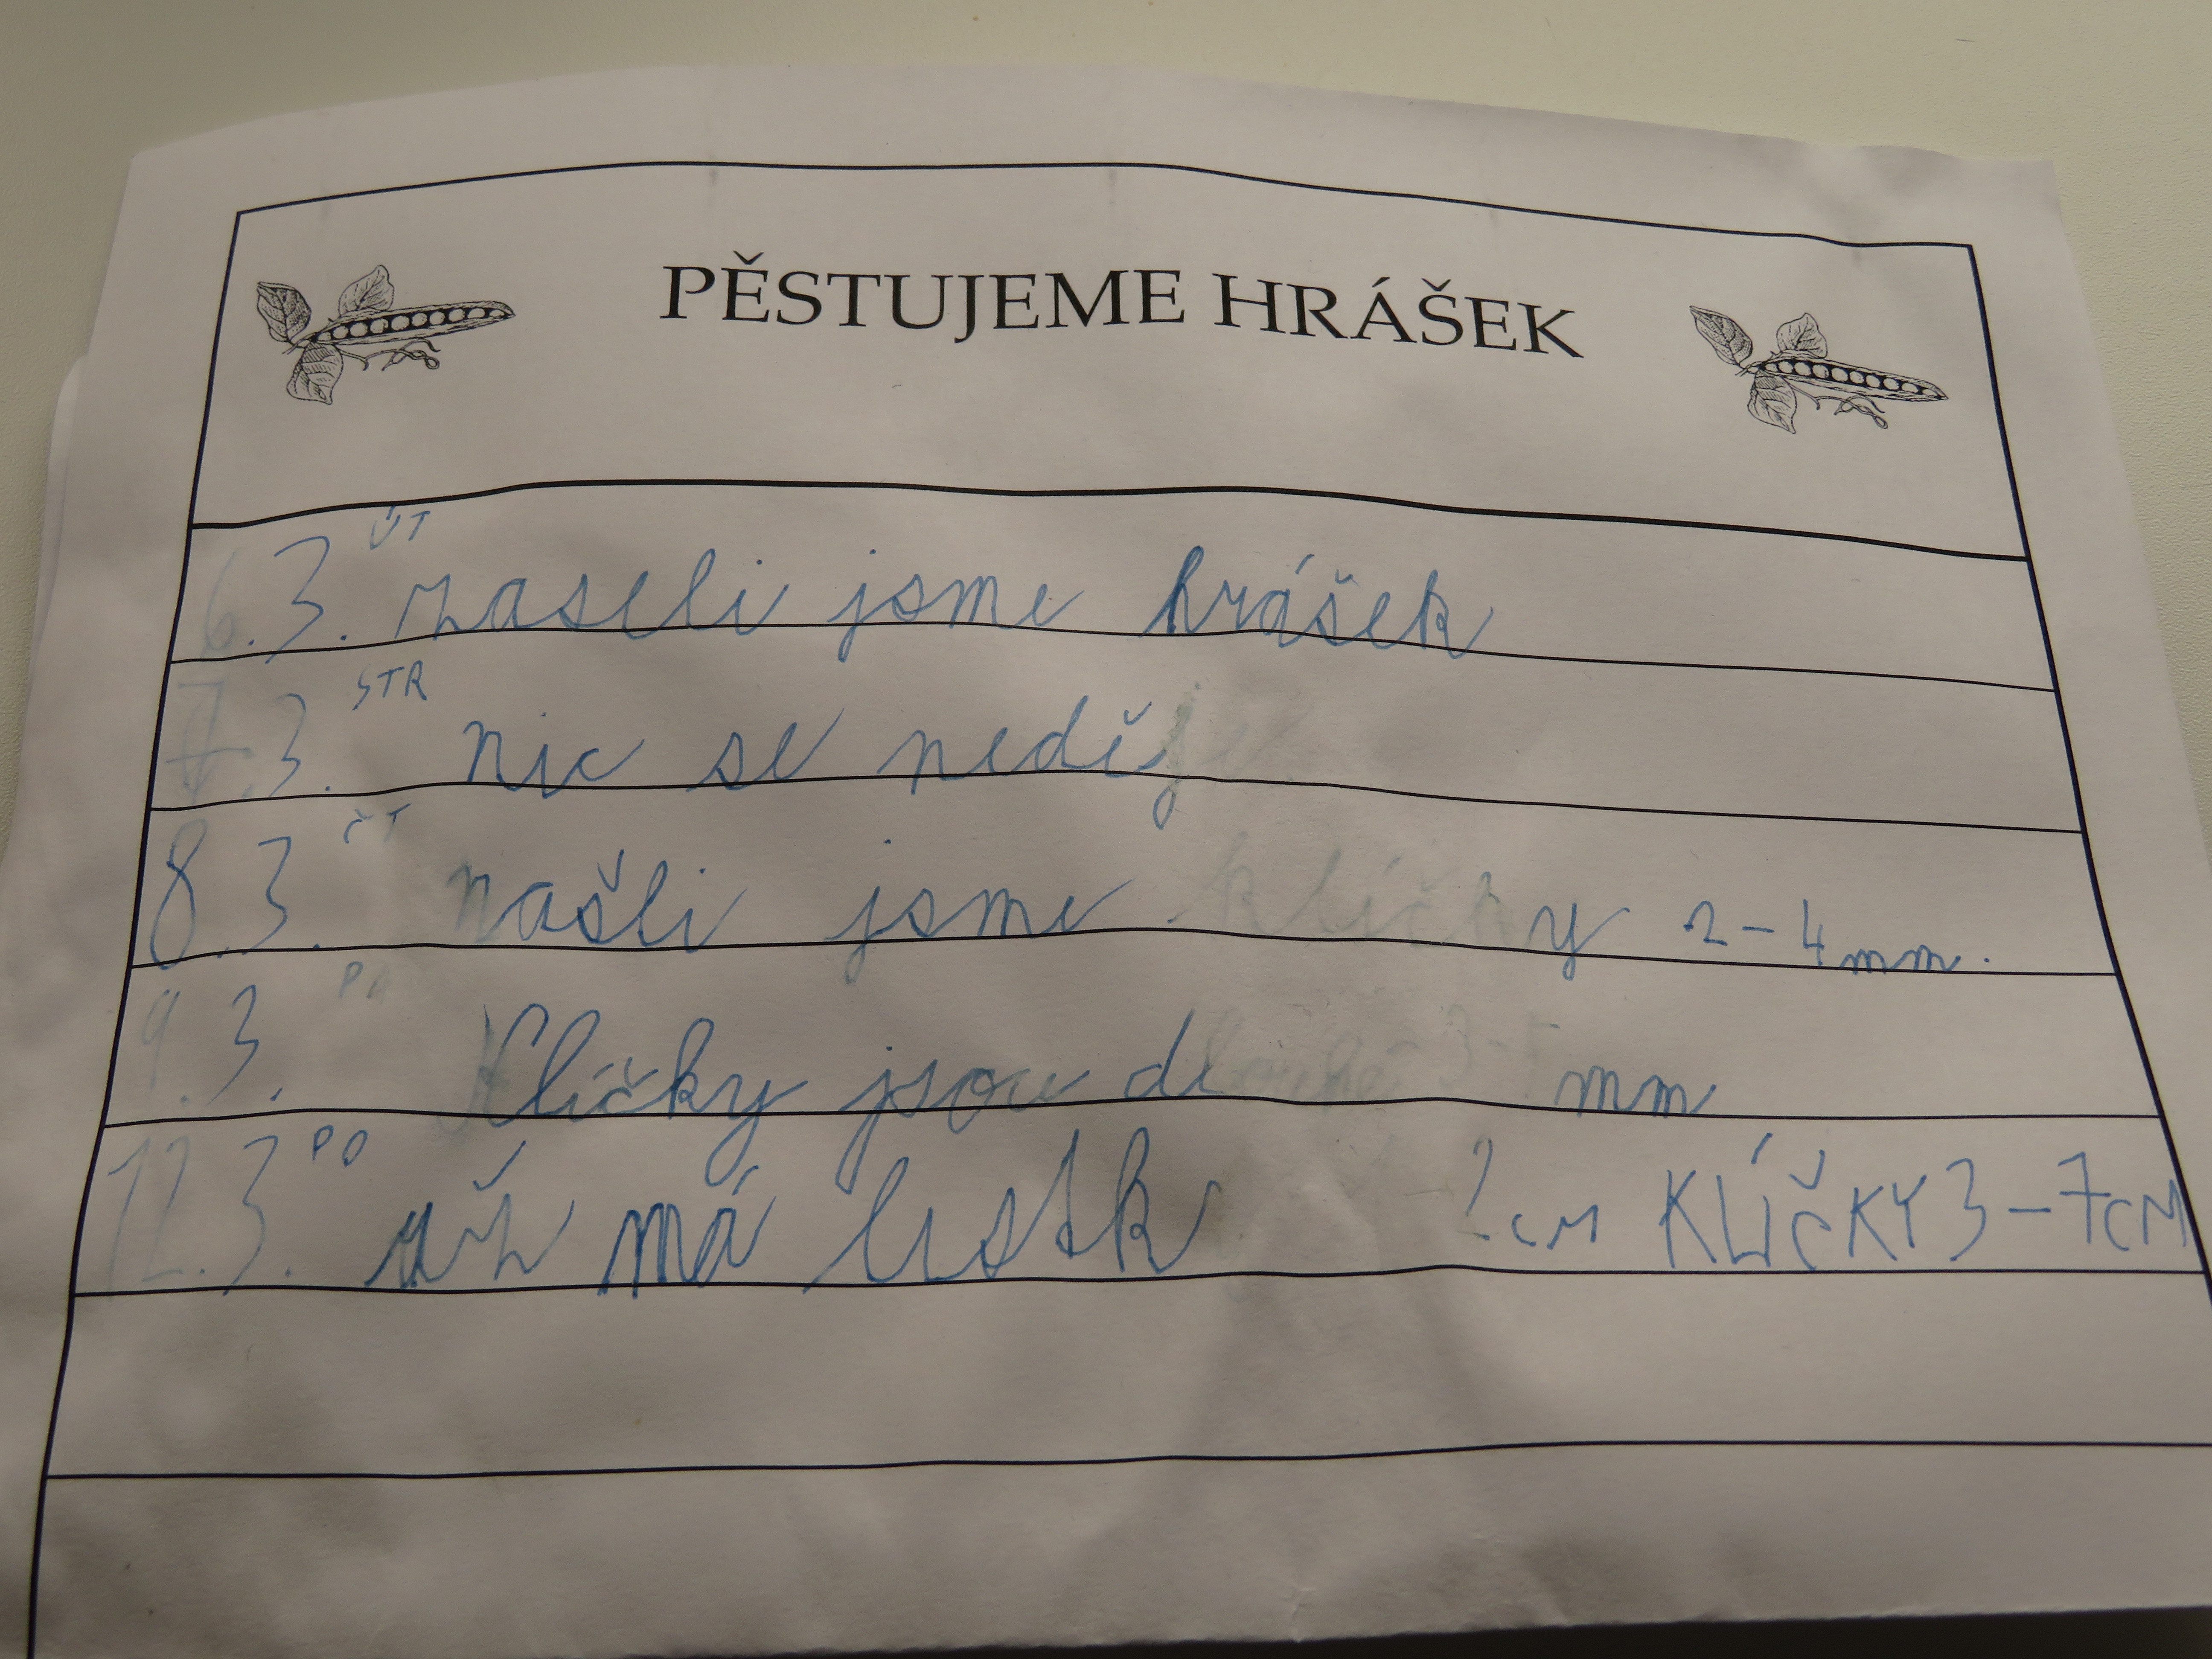 PĚSTUJEME HRÁŠEK
6. 3. ÚT zaseli jsme hrášek
7. 3. STR nic se neděje
8. 3. ČT našli jsme klíčky 2-4 mm.
9. 3. PÁ Klíčky jsou dlouhé 3-5 mm
12. 3. PO už má lístk 2 cm KLÍČKY 3-7CM